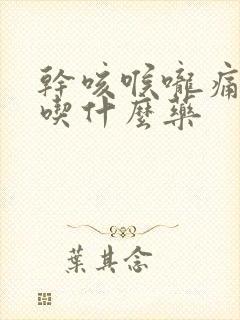 幹咳喉嚨痛
喫什麼藥
葉其念